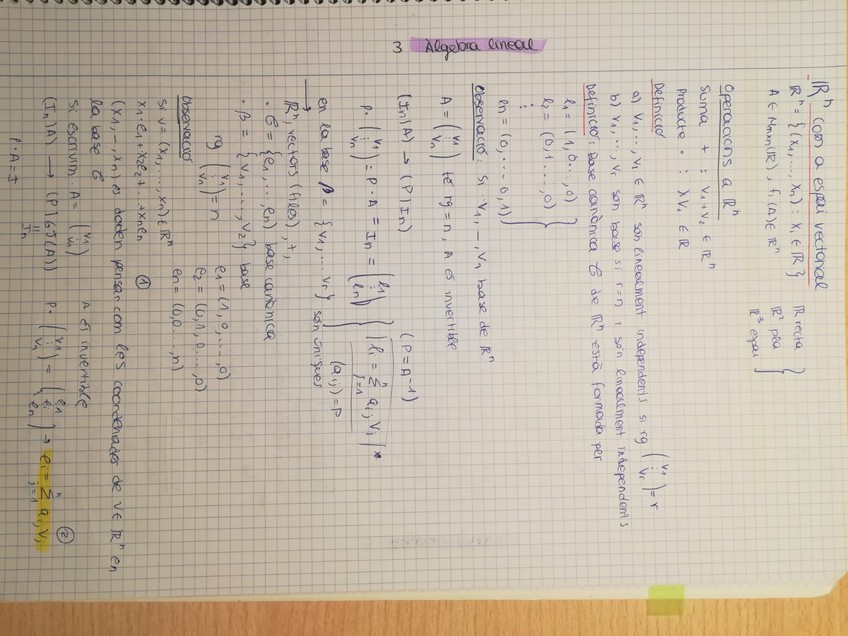 3 Àlgebra lineal
ℝⁿ com a espai vectorial
ℝⁿ = {(x₁, ..., xₙ) : xᵢ ∈ ℝ} ℝ recta
A ∈ Mₘₓₙ(ℝ), fᵢ(A) ∈ ℝⁿ ℝ² pla
ℝ³ espai
Operacions a ℝⁿ
Suma + : v₁+v₂ ∈ ℝⁿ
Producte · : λv₁ ∈ ℝ
Definició
a) v₁, ..., vᵣ ∈ ℝⁿ són linealment independents si rg (v₁ ⋮ vᵣ) = r
b) v₁, ..., vᵣ són base si r=n i són linealment independents
Definició: Base canònica C de ℝⁿ està formada per
l₁ = (1,0,...,0)
l₂ = (0,1,...,0)
⋮
ln = (0,...,0,1)
Observació: Si v₁, ..., vₙ base de ℝⁿ
A = (v₁ ⋮ vₙ) té rg=n, A és invertible
(In|A) → (P|In) (P = A-1)
P· (v₁ ⋮ vₙ) = P·A = In = (l₁ ⋮ ln) lᵢ = Σⁿⱼ₌₁ aᵢⱼ vⱼ *
en la base β = {v₁, ... vₙ} són úniques (aᵢⱼ) = P
ℝⁿ, vectors (files), +, ·
· C = {e₁, ..., en} base canònica e₁ = (1,0,...,0)
· β = {v₁, ..., v₂} base e₂ = (0,1,0...,0)
rg (v₁ ⋮ vₙ) = n en = (0,0...,n)
Observació
si v = (x₁, ..., xₙ) ∈ ℝⁿ
x₁·e₁ + x₂e₂ + ... + xₙen ①
(x₁, ..., xₙ) es poden pensar com les coordenades de v ∈ ℝⁿ en
la base C
Si escrivim A = (v₁ ⋮ vₙ) A és invertible
(In|A) → (P|GJ(A)) P· (v₁ ⋮ vₙ) = (e₁ eᵢ en) → eᵢ = Σⁿⱼ₌₁ aᵢⱼ vⱼ ②
= In
P·A = I